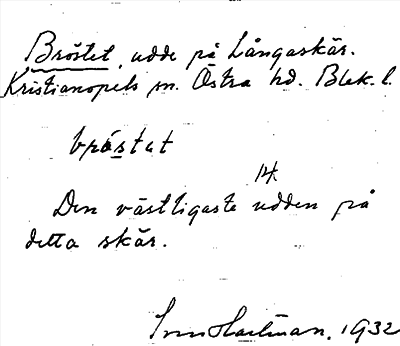 Bröstet, udde på Långaskär.
Kristianopels sn. Östra hd. Blek. l.
bröstet
14.
Den västligaste udden på
detta skär.
Hartman. 1932